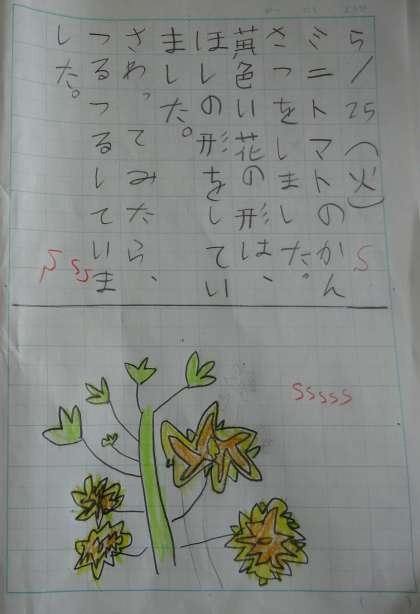 5/25(火)
S
ミニトマトのかん
さつをしました。
黄色い花の形は、
ほしの形をしてい
ました。
さわってみたら、
つるつるしていま
した。
SSS
SSSSS